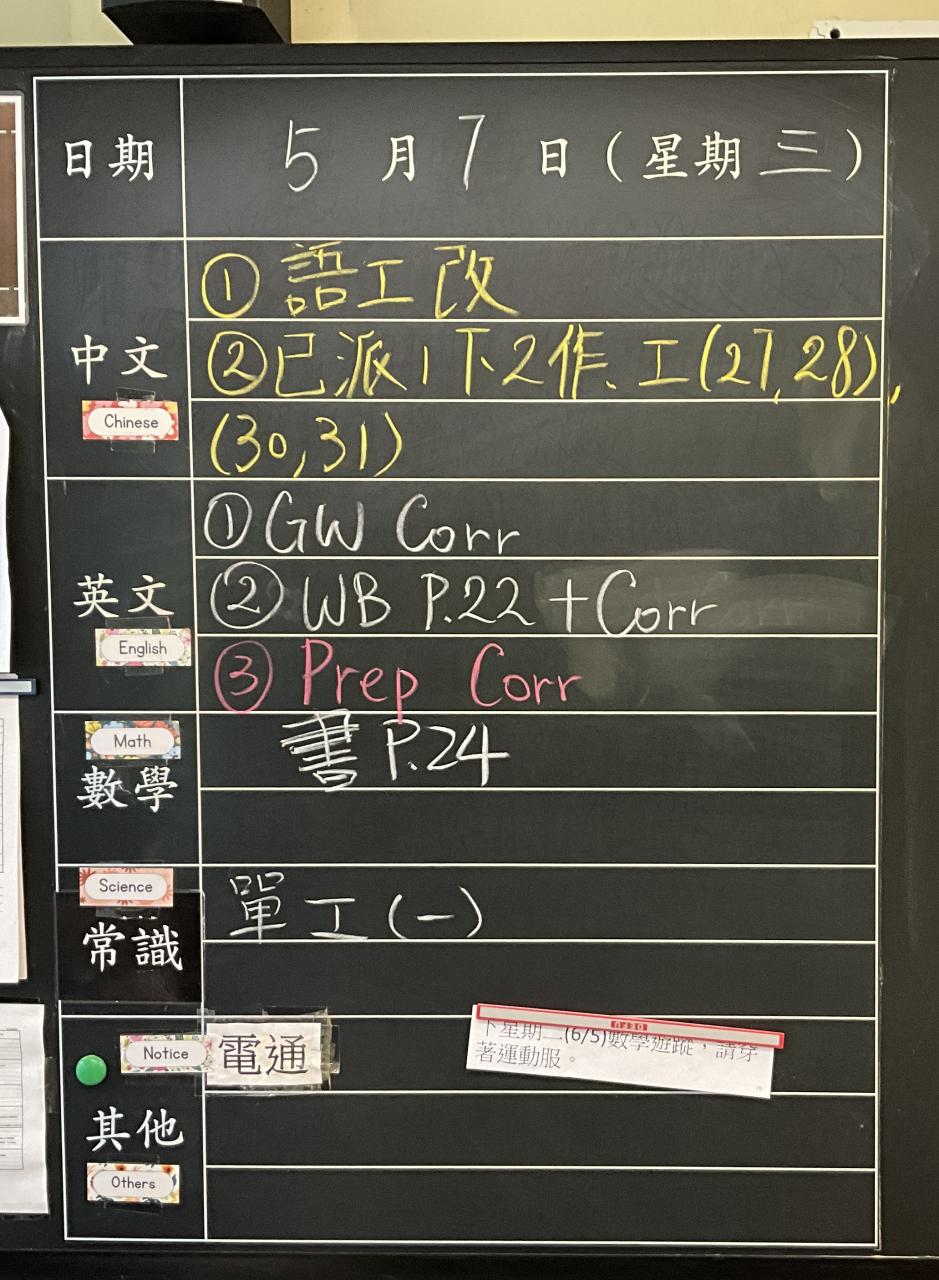 日期 5月7日(星期三)
中文
Chinese
①語工改
②已派1下2作、工(27,28),
(30,31)
英文
English
①GW Corr
②WB P.22+Corr
③Prep Corr
Math
數學
書P.24
Science
常識
單工(一)
Notice
電通
下星期二(6/5)數學遊蹤,請穿
著運動服。
其他
Others